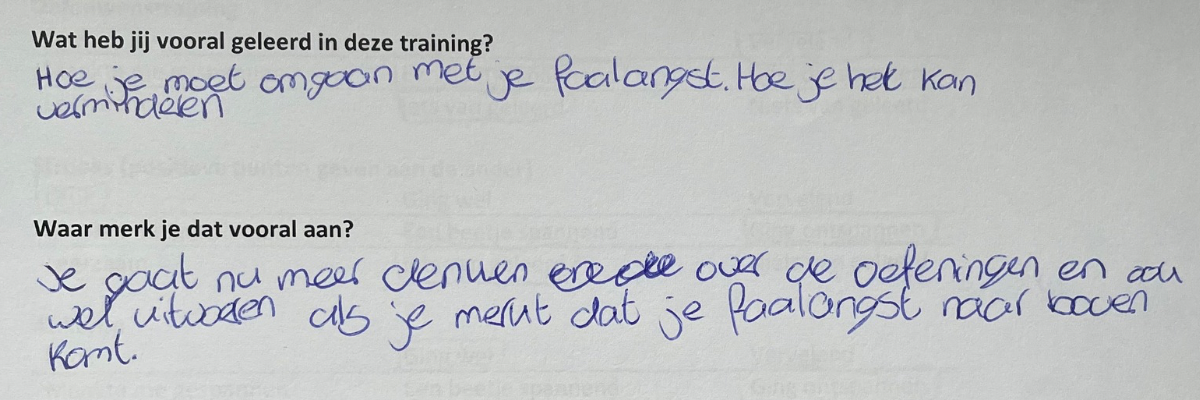 Wat heb jij vooral geleerd in deze training?
Hoe je moet omgaan met je faalangst. Hoe je het kan
verminderen
Waar merk je dat vooral aan?
Je gaat nu meer denken over de oefeningen en
wel als je merkt dat je faalangst naar boven
komt.